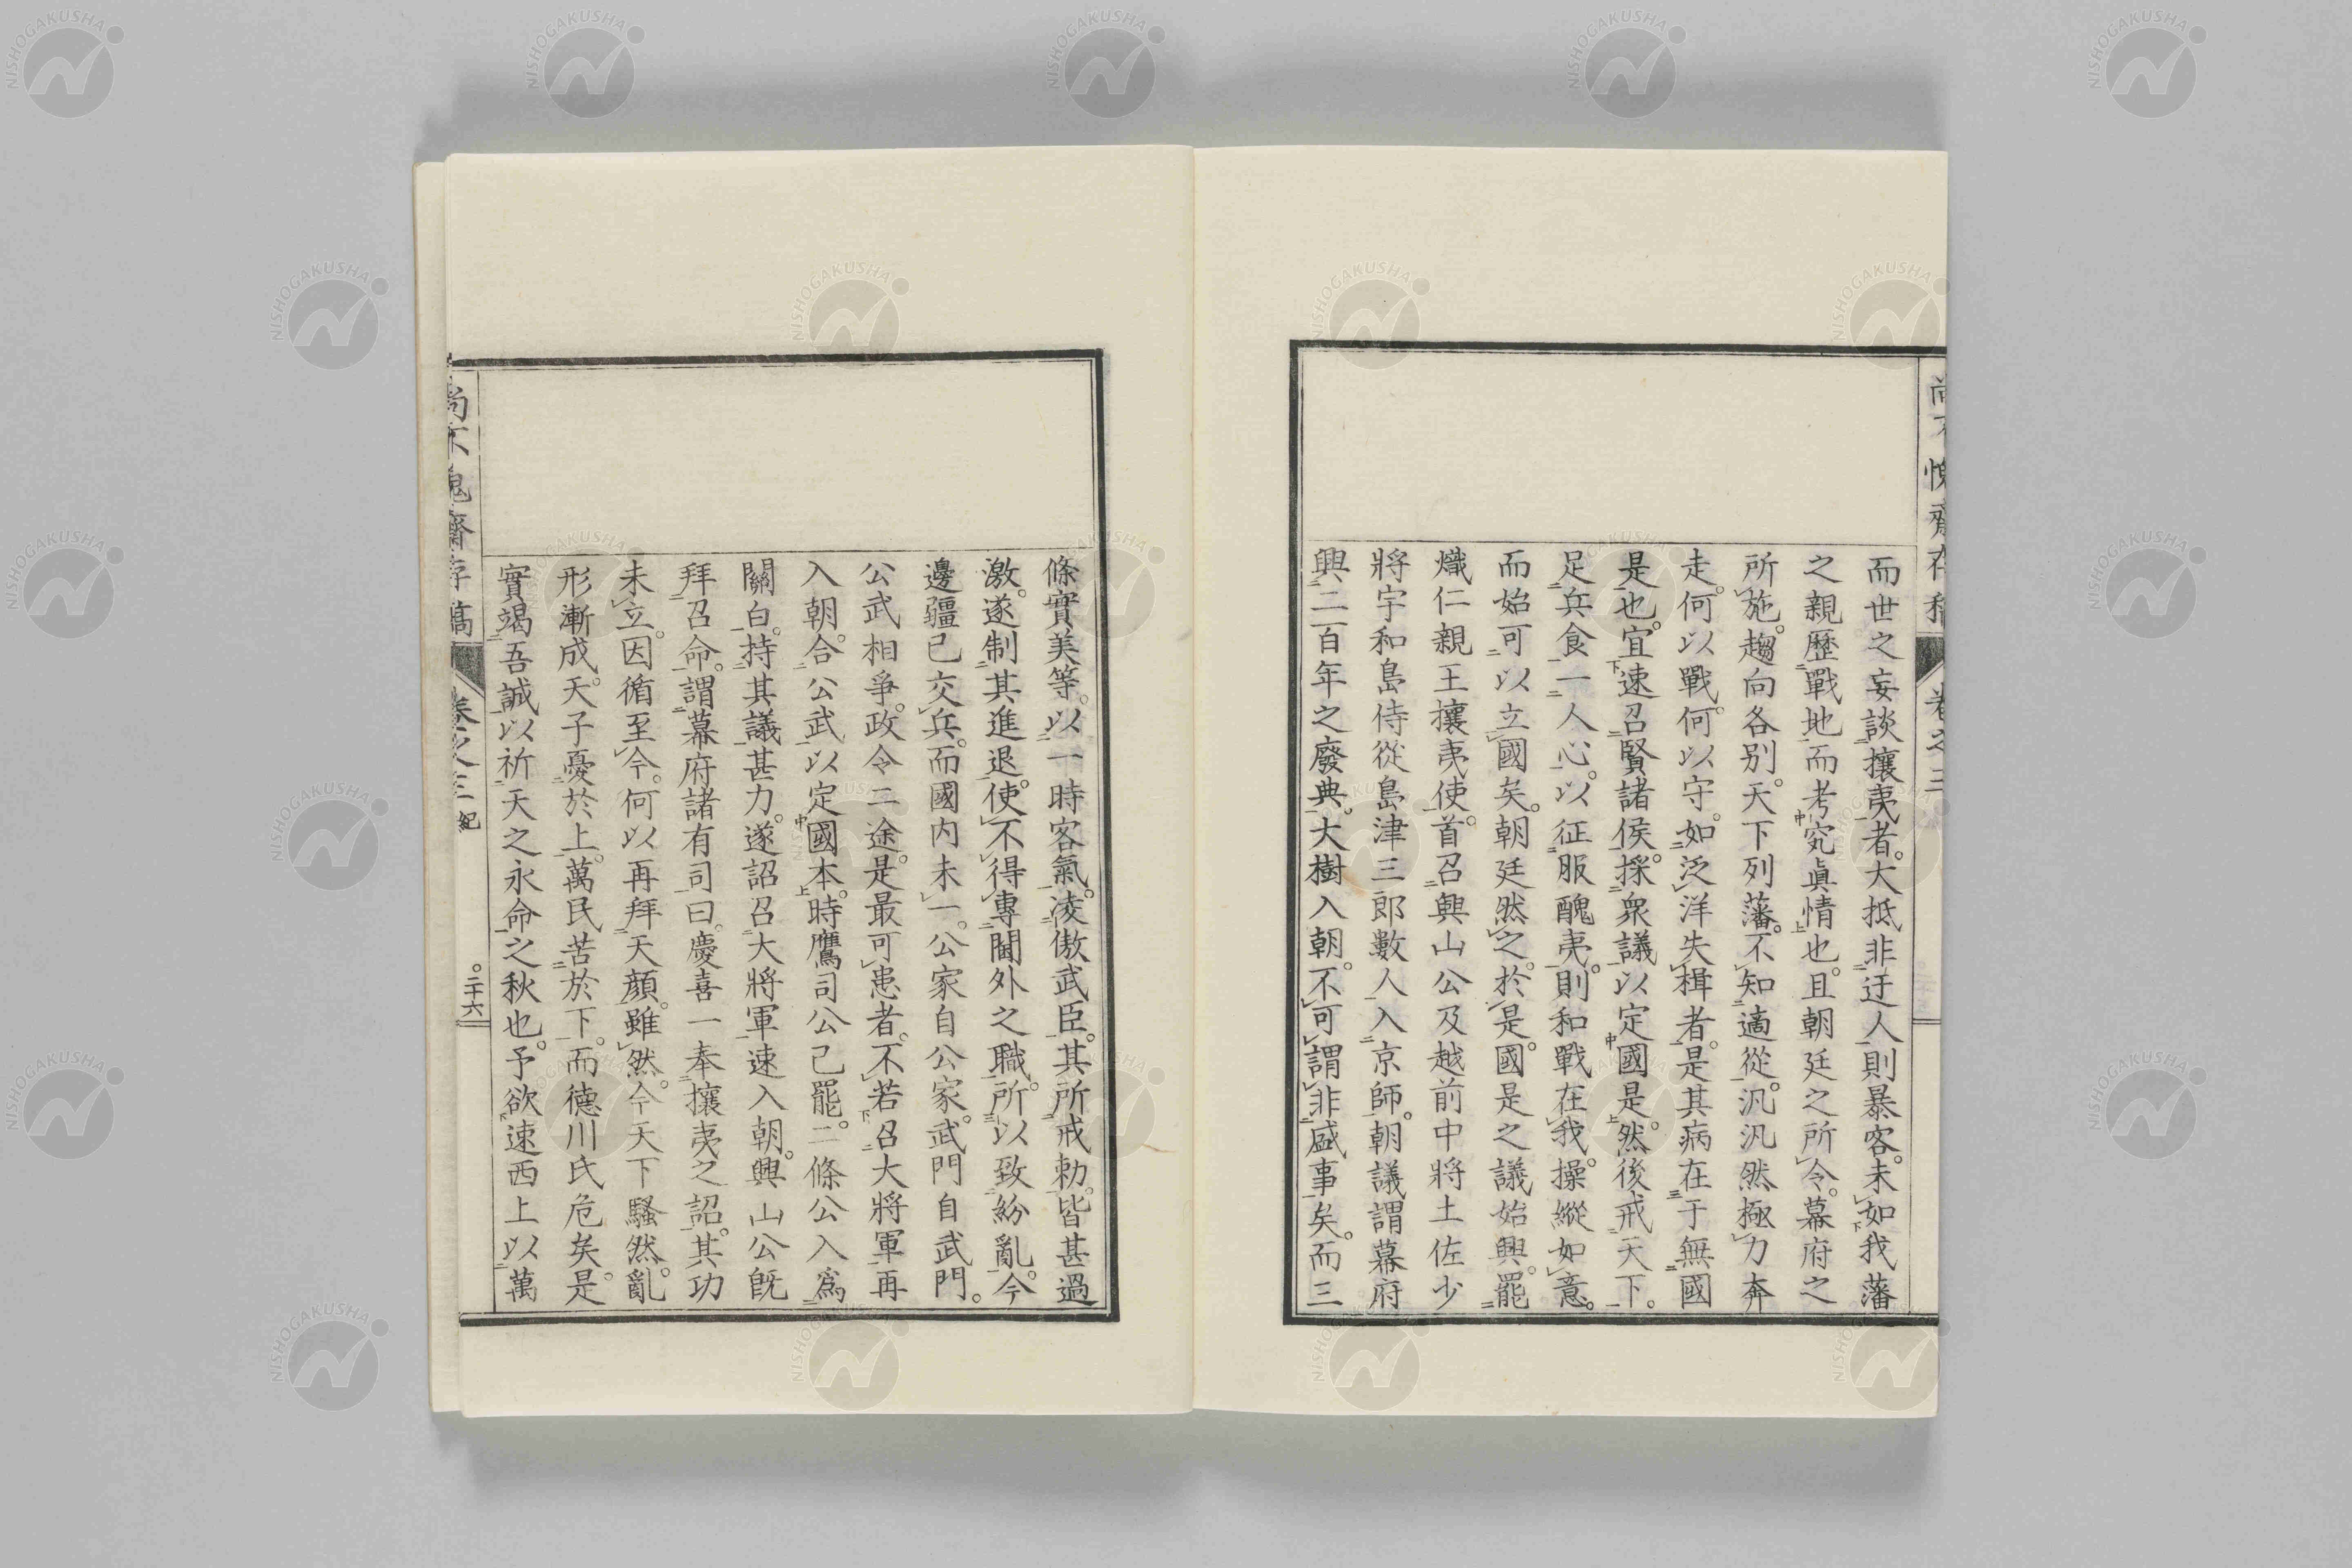 尚不愧齋存稿 卷之三
而世之妄談攘夷者。大抵非迂人則暴客。未如我藩
之親歷戰地而考究眞情也。且朝廷之所令。幕府之
所施。趨向各別。天下列藩。不知適從。汎汎然極力奔
走。何以戰。何以守。如泛洋失楫者。是其病在于無國
是也。宜速召賢諸侯。採衆議以定國是。然後戒天下。
足兵食一人心。以征服醜夷。則和戰在我。操縱如意。
而始可以立國矣。朝廷然之。於是國是之議始興。罷
熾仁親王攘夷使。首召興山公及越前中將土佐少
將宇和島侍從島津三郎數人入京師。朝議謂幕府
興二百年之廢典。大樹入朝。不可謂非盛事矣。而三
條實美等。以一時客氣。凌傲武臣。其所戒勅。皆甚過
激。遂制其進退。使不得專閫外之職。所以致紛亂。今
邊疆已交兵。而國内未一。公家自公家。武門自武門。
公武相爭。政令二途。是最可患者。不若召大將軍再
入朝。合公武以定國本。時鷹司公已罷。二條公入爲
關白。持其議甚力。遂詔召大將軍速入朝。興山公既
拜召命。謂幕府諸有司曰。慶喜一奉攘夷之詔。其功
未立。因循至今。何以再拜天顏。雖然。今天下騷然。亂
形漸成。天子憂於上。萬民苦於下。而德川氏危矣。是
實竭吾誠以祈天之永命之秋也。予欲速西上以萬
尚不愧齋存稿 卷之三 紀 ○二十六
NISHOGAKUSHA